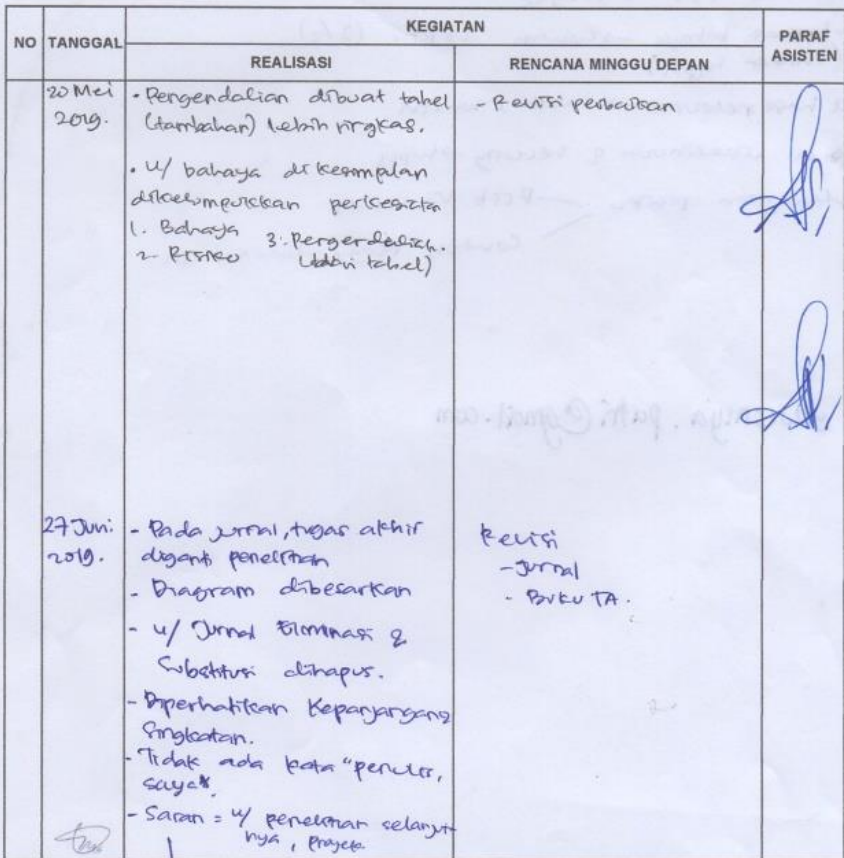 NO TANGGAL KEGIATAN PARAF ASISTEN
REALISASI RENCANA MINGGU DEPAN
20 Mei
2019.
• Pengendalian dibuat tabel
(tambahan) lebih ringkas.
• u/ bahaya di kesimpulan
dikelompokkan perkegiatan
1. Bahaya 3. Pengendalian.
2. Risiko (dari tabel)
- Revisi perbaikan
27 Juni
2019.
- Pada jurnal, tugas akhir
diganti penelitian
- Diagram dibesarkan
- u/ Jurnal Eliminasi &
Substitusi dihapus.
- Diperhatikan Kepanjangan
Singkatan.
- Tidak ada kata "penulis,
saya".
- Saran = u/ penelitian selanjut
nya, proyek
Revisi
- Jurnal
- Buku TA.
@gmail.com